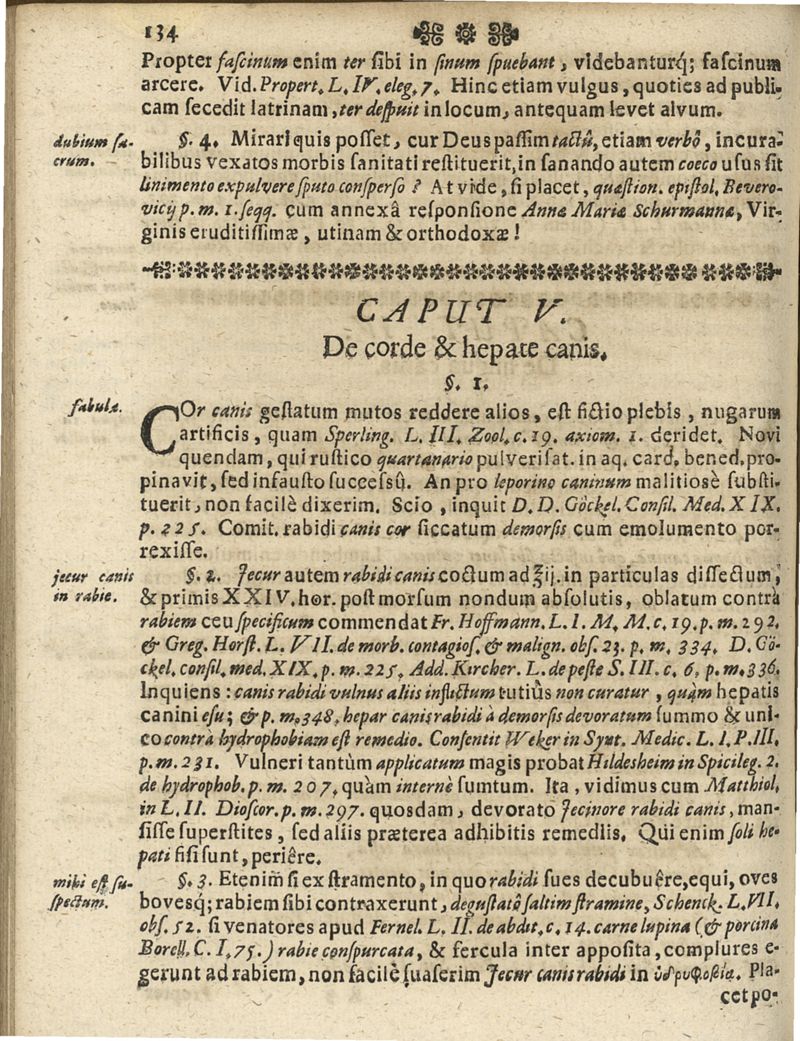 134
Propter fascinum enim ter sibi in sinum spuebant, videbanturq́; fascinum
arcere. Vid. Propert. L. IV. eleg. 7. Hinc etiam vulgus, quoties ad publi-
cam secedit latrinam, ter despuit in locum, antequam levet alvum.
dubium sa-
crum.
§. 4. Mirari quis posset, cur Deus passim tactû, etiam verbô, incura-
bilibus vexatos morbis sanitati restituerit, in sanando autem coeco usus sit
linimento ex pulvere sputo consperso? At vide, si placet, quæstion. epistol. Bevero-
vicij p. m. 1. seqq. cum annexâ responsione Annæ Mariæ Schurmannæ, Vir-
ginis eruditissimæ, utinam & orthodoxæ!
CAPUT V.
De corde & hepate canis.
§. 1.
fabulæ.
COr canis gestatum mutos reddere alios, est fictio plebis, nugarum
artificis, quam Sperling. L. III. Zool. c. 19. axiom. 1. deridet. Novi
quendam, qui rustico quartanario pulverisat. in aq. card. bened. pro-
pinavit, sed infausto successû. An pro leporino caninum malitiosè substi-
tuerit, non facilè dixerim. Scio, inquit D. D. Göckel. Consil. Med. XIX.
p. 225. Comit. rabidi canis cor siccatum demorsis cum emolumento por-
rexisse.
jecur canis
in rabie.
§. 2. Jecur autem rabidi canis coctum ad ℥ij. in particulas dissectum,
& primis XXIV. hor. post morsum nondum absolutis, oblatum contrà
rabiem ceu specificum commendat Fr. Hoffmann. L. I. M. M. c. 19. p. m. 292.
& Greg. Horst. L. VII. de morb. contagios. & malign. obs. 23. p. m. 334. D. Gö-
ckel. consil. med. XIX. p. m. 225. Add. Kircher. L. de peste S. III. c. 6. p. m. 336.
Inquiens: canis rabidi vulnus aliis inflictum tutiùs non curatur, quàm hepatis
canini esu; & p. m. 348. hepar canis rabidi à demorsis devoratum summo & uni-
co contrà hydrophobiam est remedio. Consentit Weker in Synt. Medic. L. I. P. III.
p. m. 231. Vulneri tantùm applicatum magis probat Hildesheim in Spicileg. 2.
de hydrophob. p. m. 207. quàm internè sumtum. Ita, vidimus cum Matthiol.
in L. II. Dioscor. p. m. 297. quosdam, devorato Jecinore rabidi canis, man-
sisse superstites, sed aliis præterea adhibitis remediis. Qui enim soli he-
pati fisi sunt, periêre.
mihi est su-
spectum.
§. 3. Etenim̃ si ex stramento, in quo rabidi sues decubuêre, equi, oves
bovesq́; rabiem sibi contraxerunt, degustatô saltim stramine, Schenck. L. VII.
obs. 52. si venatores apud Fernel. L. II. de abdit. c. 14. carne lupina (& porcina
Borell. C. I. 75.) rabie conspurcata, & fercula inter apposita, complures e-
gerunt ad rabiem, non facilè suaserim Jecur canis rabidi in ὑδρυφοβίᾳ. Pla-
cet po-